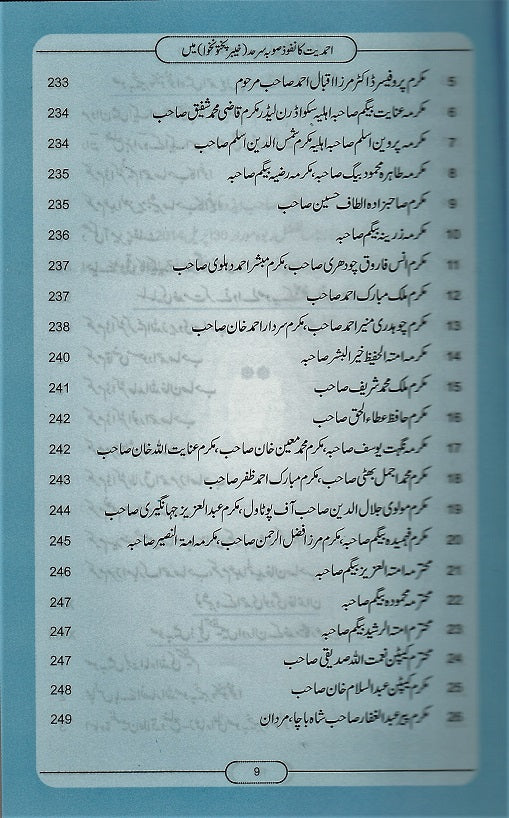 احمدیت کا نفوذ صوبہ سرحد (خیبر پختونخوا) میں
5 مکرم پروفیسر ڈاکٹر مرزا اقبال احمد صاحب مرحوم 233
6 مکرمہ عنایت بیگم صاحبہ اہلیہ سکواڈرن لیڈر مکرم قاضی محمد شفیق صاحب 234
7 مکرمہ پروین اسلم صاحبہ اہلیہ مکرم شمس الدین اسلم صاحب 234
8 مکرمہ طاہرہ محمود بیگ صاحبہ، مکرمہ رضیہ بیگم صاحبہ 235
9 مکرم صاحبزادہ الطاف حسین صاحب 235
10 مکرمہ زرینہ بیگم صاحبہ 236
11 مکرم انس فاروق چودھری صاحب، مکرم مبشر احمد دہلوی صاحب 237
12 مکرم ملک مبارک احمد صاحب 237
13 مکرم چوہدری منیر احمد صاحب، مکرم سردار احمد خان صاحب 238
14 مکرمہ امتہ الحفیظ خیر البشر صاحبہ 240
15 مکرم ملک محمد شریف صاحب 241
16 مکرم حافظ عطاء الحق صاحب 242
17 مکرمہ نگہت یوسف صاحبہ، مکرم محمد معین خان صاحب، مکرم عنایت اللہ خان صاحب 242
18 مکرم محمد اجمل بھٹی صاحب، مکرم مبارک احمد ظفر صاحب 243
19 مکرم مولوی جلال الدین صاحب آف پوٹاول، مکرم عبد العزیز جہانگیری صاحب 244
20 مکرم فہمیدہ بیگم صاحبہ، مکرم مرزا فضل الرحمن صاحب، مکرمہ امۃ النصیر صاحبہ 245
21 محترمہ امتہ العزیز بیگم صاحبہ 246
22 محترمہ محمودہ بیگم صاحبہ 247
23 محترم امتہ الرشید بیگم صاحبہ 247
24 محترم کیپٹن نعمت اللہ صدیقی صاحب 247
25 مکرم کیپٹن عبد السلام خان صاحب 248
26 مکرم پیر عبد الغفار صاحب شاہ باچا، مردان 249
9